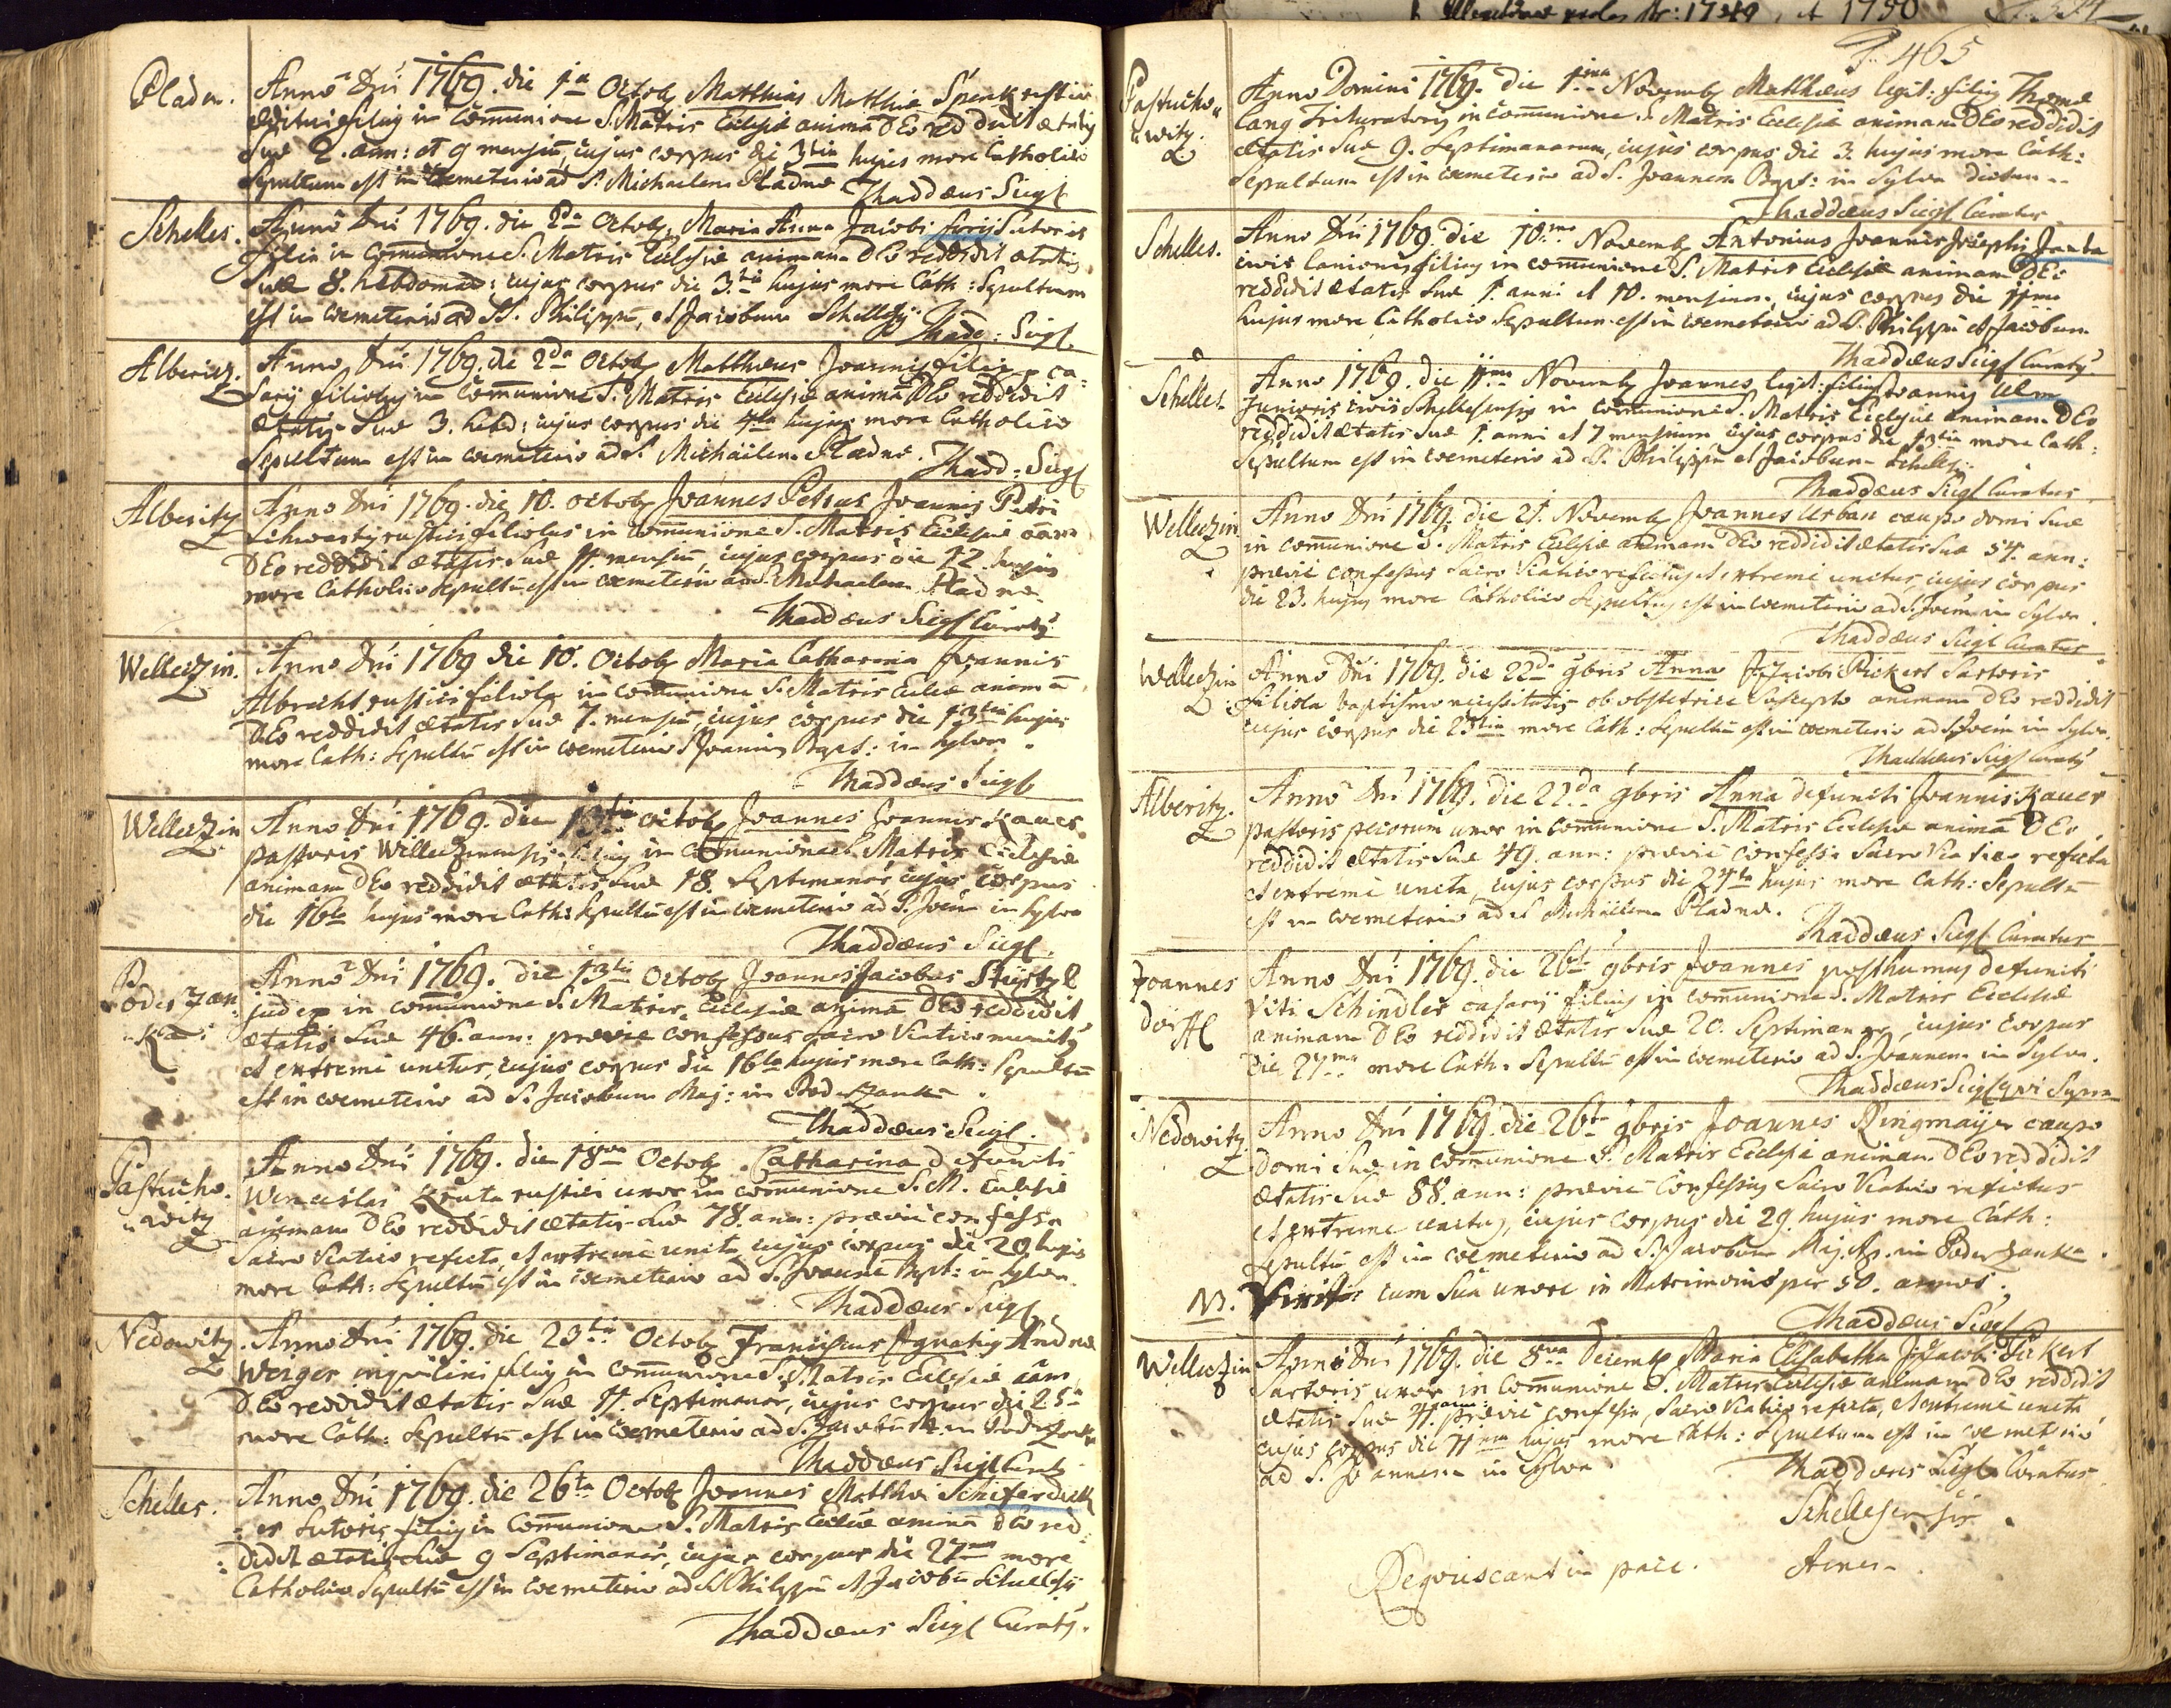 Pladen.
Anno Dni 1769. die 1a Octob Matthias Matthiæ Spenk rustici
æditui filius in Communione S. Matris Ecclesiæ animã DEo reddidit ætatis
Suæ 2. ann: et 9 mensiũ, cujus corpus die 3tia hujus more Catholico
Sepultum est in Cœmeterio ad S. Michaelem Pladnæ
Thaddæus Siegl
Schelles.
Anno Dni 1769. die 2da Octob, Maria Anna Jacobi Sutoris
filia in Communione S. Matris Ecclesiæ animam DEo reddidit ætatis
Suæ 8. hebdomad: cujus corpus die 3tia hujus more Cath: Sepultum
est in cœmeterio ad SS. Philippũ, et Jacobum Schellesij.
Thadd: Siegl.
Alberitz.
Anno Dni 1769. die 2da Octob Matthæus Joannis filij ca=
sarij filiolus in Communione S. Matris Ecclesiæ animã DEo reddidit
ætatis Suæ 3. hebd: cujus corpus die 4ta hujus more Catholico
Sepultum est in cœmeterio ad S. Michäelem Pladnæ. Thadd: Siegl
Alberitz
Anno Dni 1769. die 10. Octob Joannes Petrus Joannis Petri
Schwartz rustici filiolus in Communione S. Matris Ecclesiæ aãm
DEo reddidit ætatis Suæ 11. mensiũ, cujus corpus die 12 hujus
more Catholico sepultũ est in cœmeterio ad S. Michaelem Pladnæ.
Thaddæus Siegl Curatus
Welleczin.
Anno Dni 1769 die 10. Octob Maria Catharina Joannis
Albrecht rustici filiola in communione S. Matris Eccles animã
DEo reddidit ætatis Suæ 7. mensiũ, cujus corpus die 13tia hujus
more Cath: Sepultũ est in cœmeterio S. Joannis Bapt: in Sylva.
Thaddæus Siegl
Welleczin
Anno Dni 1769. die 13tia Octob Joannes Joannis Kauer
pastoris Welleczinensis filius in Communione S. Matris Ecclesiæ
animam DEo reddidit ætatis Suæ 18. Septimanar, cujus corpus
die 16ta hujus more Cath: Sepultũ est in cœmeterio ad S. Joẽm in Sylva
Thaddæus Siegl.
Podersan
ka:
Anno Dni 1769. die 13tia Octob Joannes Jacobus
judex in communione S. Matris Ecclesiæ animã DEo reddidit
ætatis Suæ 46. ann: prævie confessus Sacro Viatico munitus
et extremè unctus, cujus corpus die 16ta hujus more Cath: Sepultũ
est in cœmeterio ad S. Jacobum Maj: in Poderzanka.
Thaddæus Siegl.
Pastucho
witz
Anno Dni 1769. die 18va Octob Catharina defuncti
Wenceslai Kruta rustici uxor in communione S. M. Ecclesiæ
animam DEo reddidit ætatis Suæ 78. ann: prævie confessa
Sacro Viatico refecta, et extremè uncta, cujus corpus die 20 hujus
more Cath: Sepultũ est in cœmeterio ad S. Joannẽ Bapt: in Sylva.
Thaddæus Siegl
Nedowitz
Anno Dni 1769. die 23tia Octob Franciscus Ignatius Andreæ
Weiger inquilini filius in communione S. Matris Ecclesiæ aãm
DEo reddidit ætatis Suæ 11. Septimanar, cujus corpus die 25a
more Cath: Sepultũ est in Cœmeterio ad S. Jacobũ M. in Poderzanka
Thaddæus Siegl Curatus
Schelles.
Anno Dni 1769. die 26ta Octob Joannes Matthæi Schiferdeck
er Sutoris filius in Communione S. Matris Ecclesiæ animã DEo red=
didit ætatis Suæ 9 Septimanar, cujus corpus die 27ma more
Catholico Sepultũ est in cœmeterio ad S. Philippũ et Jacobũ Schellesij
Thaddæus Siegl Curatus.
P. 465
Pastucho
witz.
Anno Domini 1769. die 1ma Novemb Matthæus legit: filius Thomæ
Lang Trituratoris in communione S. Matris Ecclesiæ animam DEo reddidit
ætatis Suæ 9. Septimanarum, cujus corpus die 3. hujus more Cath:
Sepultum est in cœmeterio ad S. Joannem Bapt: in Sylva dictum
Thaddæus Siegl Curatus
Schelles.
Anno Dni 1769. die 10ma Novemb Antonius Joannis Josephi Janka
civis lanionis filius in communione S. Matris Ecclesiæ animam DEo
reddidit ætatis Suæ 1. anni et 10. mensium, cujus corpus die 11ma
hujus more Catholico Sepultum est in cœmeterio ad S. Philippũ et Jacobum
Thaddæus Siegl Curatus
Schelles.
Anno 1769. die 11ma Novemb Joannes legit: filius Joannis Ulm
Junioris civis Schellesensis in communione S. Matris Ecclesiæ animam DEo
reddidit ætatis Suæ 1. anni et 7 mensium, cujus corpus die 13tia more Cath:
Sepultum est in cœmeterio ad S. Philippũ et Jacobum Schellesij
Thaddæus Siegl Curatus
Welleczin
Anno Dni 1769. die 21. Novemb Joannes Urban caupo domi Suæ
in communione S. Matris Ecclesiæ animam DEo reddidit ætatis Suæ 54. ann:
prævie confessus Sacro Viatico refectus, et extremè unctus, cujus corpus
die 23. hujus more Catholico Sepultus est in cœmeterio ad S. Joẽm in Sylva.
Thaddæus Siegl Curatus
Welleczin
Anno Dni 1769. die 22da 9bris Anna Jacobi Pickert Sartoris
filiola baptismo necessitatis ab obstetrice suscepto animam DEo reddidit
cujus corpus die 23tia more Cath: Sepultũ est in cœmeterio ad S. Joẽm in Sylva.
Thaddæus Siegl Curatus
Alberitz.
Anno Dni 1769. die 22da 9bris Anna defuncti Joannis Kauer
pastoris pecorum uxor in communione S. Matris Ecclesiæ animã DEo
reddidit ætatis Suæ 49. ann: prævie confessa Sacro Viatico refecta
et extremè uncta, cujus corpus die 24ta hujus more Cath: Sepultũ
est in cœmeterio ad S Michäelem Pladnæ.
Thaddæus Siegl Curatus
Joannes
dörffl
Anno Dni 1769. die 26ta 9bris Joannes posthumus defuncti
Viti Schindler casarij filius in communione S. Matris Ecclesiæ
animam DEo reddidit ætatis Suæ 20. Septimanar, cujus corpus
die 27ma more Cath: Sepultũ est in cœmeterio ad S. Joannem in Sylva.
Thaddæus Siegl qui Supra
Nedowitz
Anno Dni 1769. die 26ta 9bris Joannes Ringmayer caupo
domi Suæ in communione S. Matris Ecclesiæ animam DEo reddidit
ætatis Suæ 88. ann: prævie Confessus Sacro Viatico refectus
et extreme unctus, cujus corpus die 29. hujus more Cath:
Sepultũ est in cœmeterio ad S. Jacobum Maj. Ap. in Poderzanka.
NB. Vixit cum Sua uxore in Matrimonio per 50. annos.
Thaddæus Siegl
Welleczin
Anno Dni 1769. die 8va Decemb Maria Elisabetha Jacobi Pickert
Sartoris uxor in Communione S. Matris Ecclesiæ animam DEo reddidit
ætatis Suæ 41. ann: prævie confessa, Sacro Viatico refecta, et extremè uncta
cujus corpus die 11ma hujus more Cath: Sepultum est in cœmeterio
ad S. Joannem in Sylva
Thaddæus Siegl Curatus
Schellesensis.
Requiescant in pace. Amen.